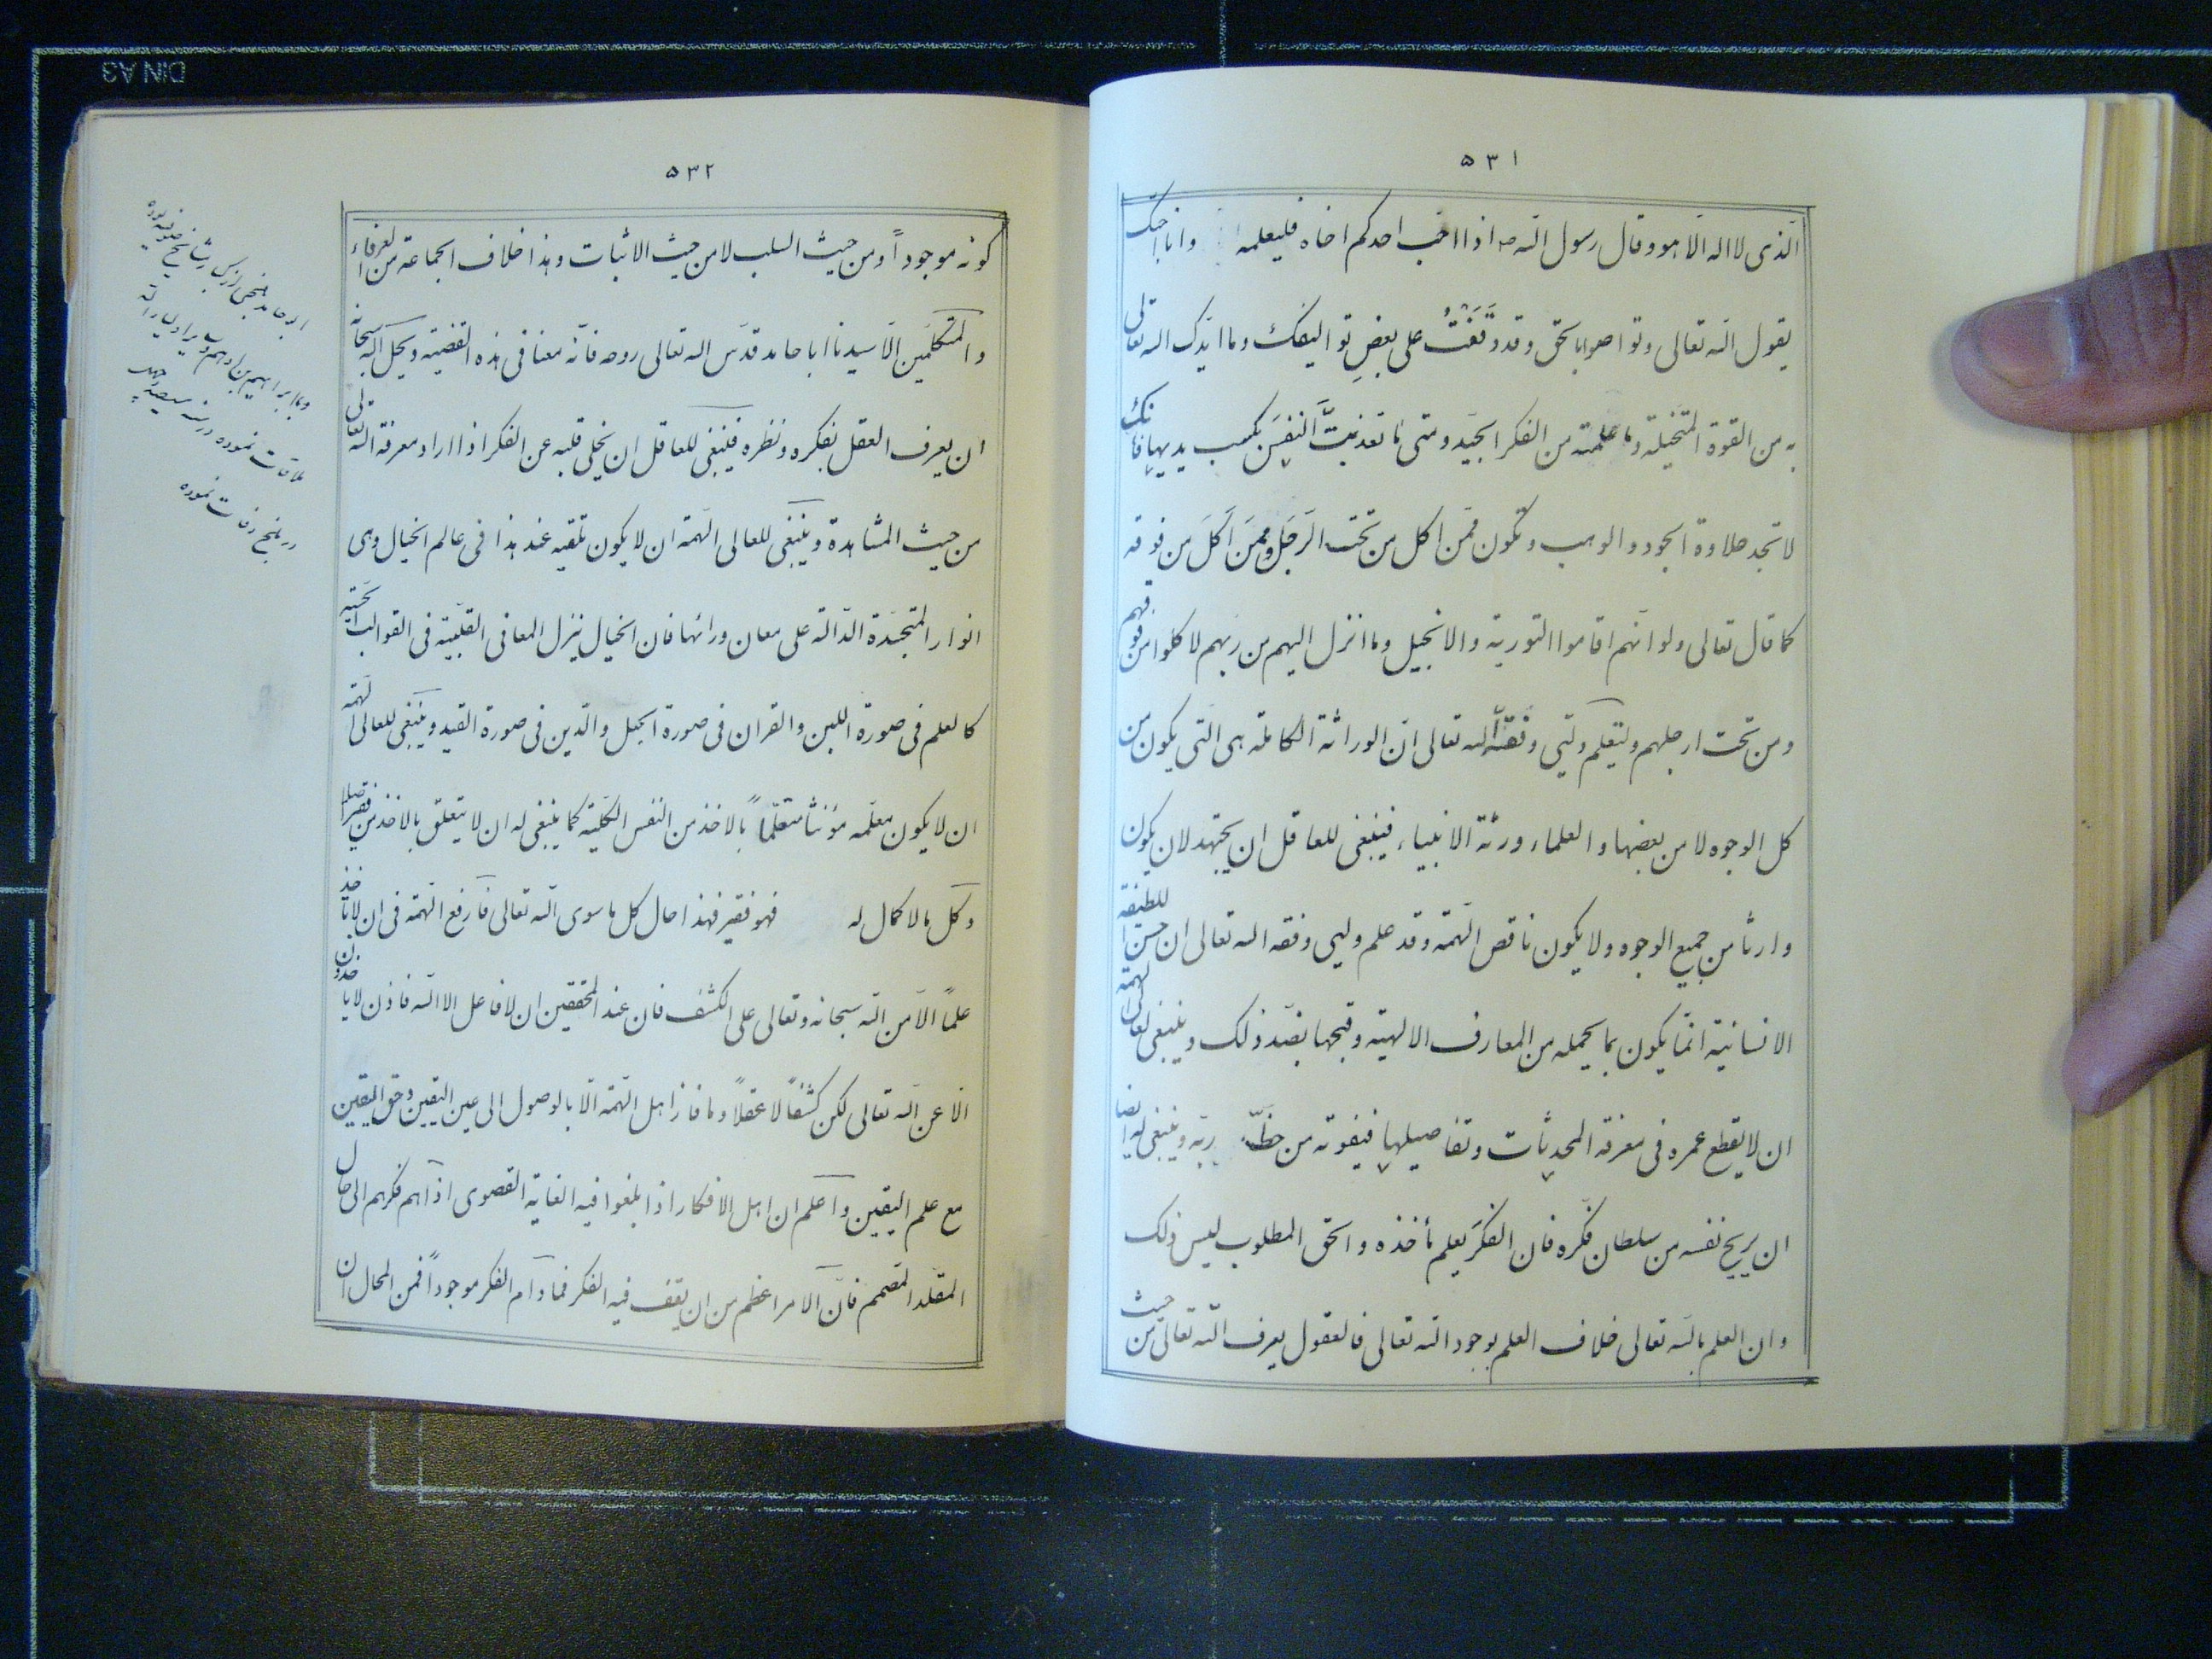 ۵۳۱
الّذی لا اله الّا هو و قال رسول الله ص اذا احبّ احدکم اخاه فلیعلمه و انا احبّک
یقول الله تعالی و تواصوا بالحق و قد وَقَفْتُ علی بعضِ تو الیفک و ما ایّدک الله تعالی
به من القوة المتخیلة و ما علمته من الفکر الجیّد و متی ما تغذیتَّ النفسَ بکسب یدیها فانک
لا تجد حلاوة الجود و الوهب و تکون فمّن اکل من تحت الرّجل و ممّن اَکَلَ من فوقه
کما قال تعالی و لو انّهم اقاموا التوریة و الانجیل و ما انزل الیهم من ربّهم لا کلوا من فوقهم
و من تحت ارجلهم و لیعلم ولیّی وفّقه الله تعالی انّ الوراثة الکاملة هی الّتی یکون من
کل الوجوه لا من بعضها و العلماء ورثة الانبیاء فینبغی للعاقل ان یجتهد لان یکون
وارثا من جمیع الوجوه و لا یکون ناقص الهّمة و قد علم ولیی وفقه الله تعالی ان حسن اللطیفة
الانسانیّة انمّا یکون بما یحمله من المعارف الالهیّة و قبحها بضدّ ذلک و ینبغی لعالی الهّمة
ان لا یقطع عمره فی معرفة المحدثات و تفاصیلها فیفوته من حظّه ربّه و ینبغی له ایضا
ان یریح نفسه من سلطان فکره فان الفکرَ یعلم مأخذه و الحق المطلوب لیس ذلک
و ان العلم بالله تعالی خلاف العلم بوجود الله تعالی فالعقول یعرف الله تعالی من حیث
۵۳۲
کونه موجوداً و من حیث السلب لا من حیث الاثبات و هذا خلاف الجماعة من العرفاء
و المتکلّمین الّا سیدنا اباحامد قدّس الله تعالی روحه فانّه معنا فی هذه القضیّة و یجل الله سبحانه
ان یعرف العقل بفکره و نظره فینبغی للعاقل ان یخلی قلبه عن الفکر اذا اراد معرفة الله تعالی
من حیث المشاهدة و ینبغی للعالی الهّمة ان لا یکون تلقیه عند هذا فی عالم الخیال و هی
انوار المتجسّدة الدّالة علی معان ورائها فان الخیال ینزل المعانی القلبیّة فی القوالب الحسّیّة
کالعلم فی صورة اللبن و القران فی صورة الحبل و الدّین فی صورة القید و ینبغی للعالی الهّمة
ان لا یکون معلّمه مؤنثا متعلّماً بالاخذ من النفس الکلّیة کما ینبغی له ان لا یتعلّق بالاخذ من فقیر اصلا
و کل ما لا کمال له فهو فقیر فهذا حال کل ما سوی الله تعالی فارفع الهّمة فی ان لا تاخذ
علماً الّا من الله سبحانه و تعالی علی الکشف فان عند المحققین ان لا فاعل الا الله فاذن لا یاخذون
الّا عن الله تعالی لکن کشفاً لا عقلاً و ما فاز اهل الهّمة الّا بالوصول الی عین الیقین و حق الیقین
مع علم الیقین و اعلم ان اهل الافکار اذا بلغوا فیه الغایة القصوی اذاهم فکرهم الی حال
المقلّد المصّمم فانّ الامر اعظم من ان یقف فیه الفکر فمادام الفکر موجوداً فمن المحال ان
ابو حامد بلخی از کبار مشایخ صوفیه بوده
و با ابراهیم بن ادهم و سایر اولیاء الله
ملاقات نموده در سنه سیصد
در بلخ وفات نموده
DIN A3